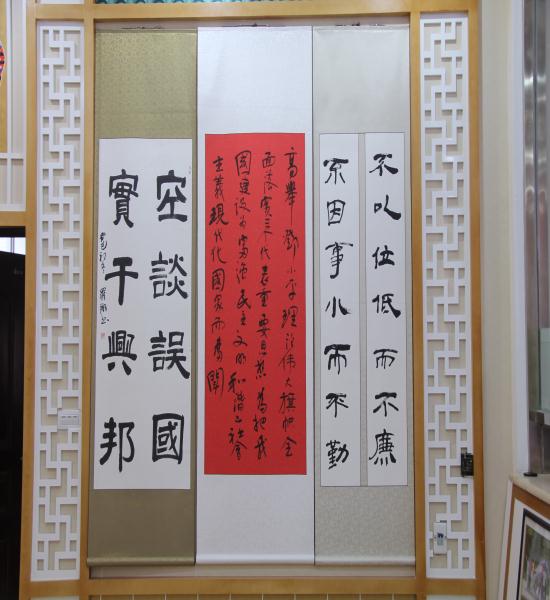 不以位低而不廉
不因事小而不勤
高舉鄧小平理论伟大旗帜全
面落實三个代表重要思想為把我
國建设为富强民主文明和谐之社會
主義現代化國家而奮鬥
空談誤國
實干興邦